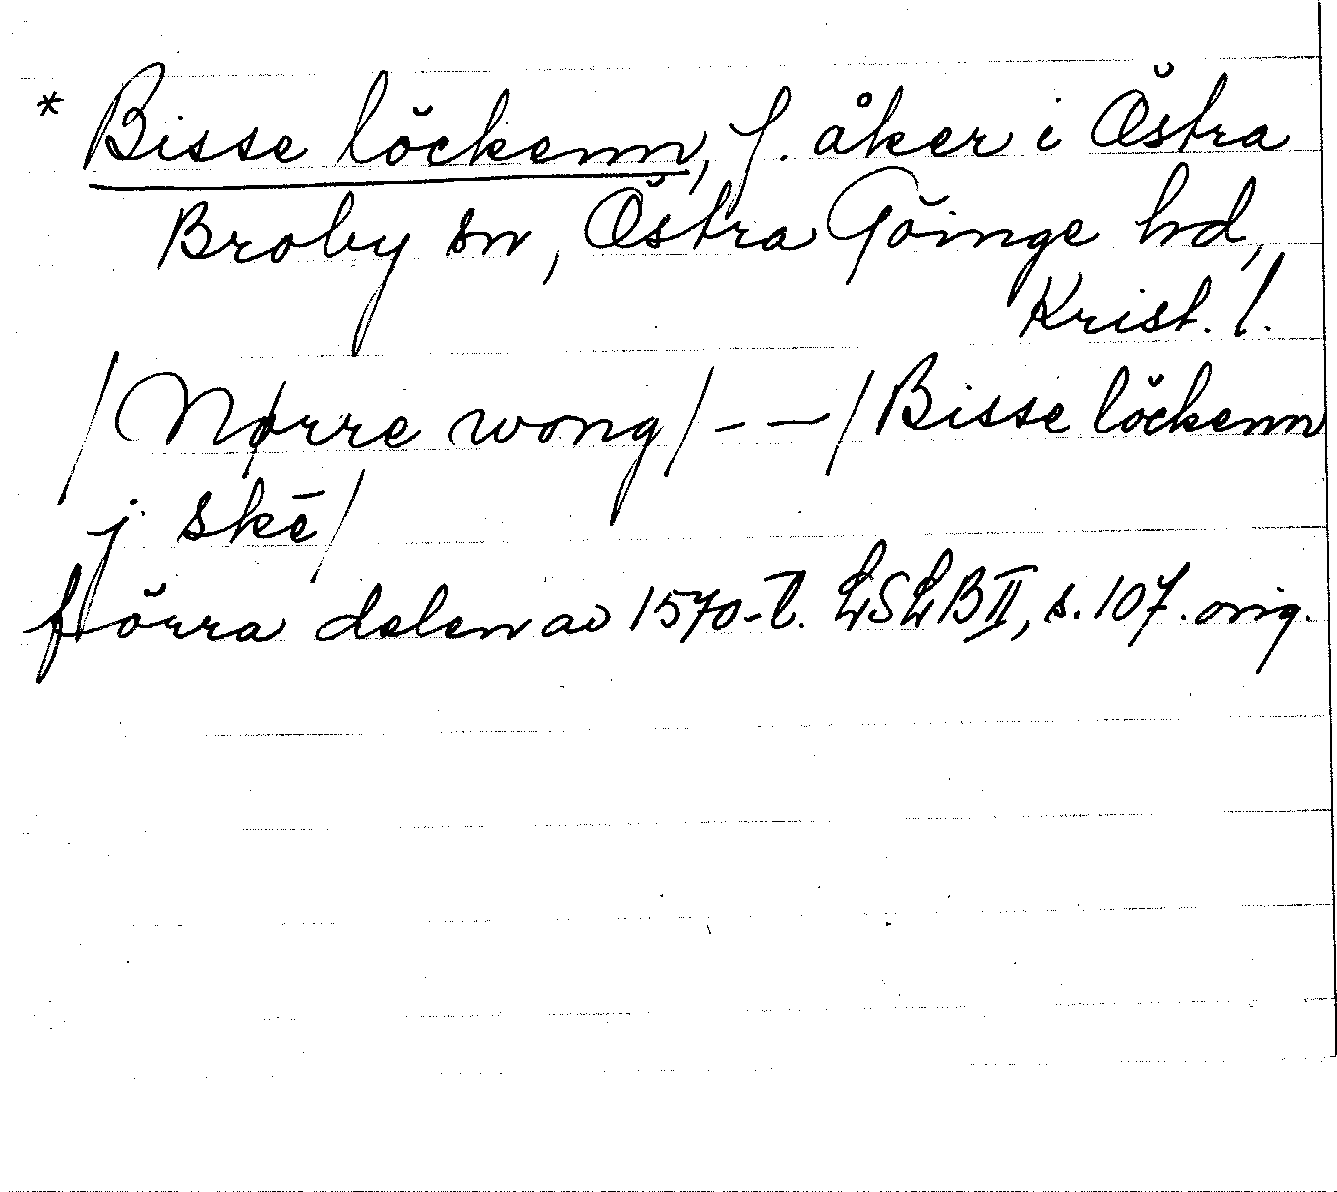 * Bisse löckenn, f. åker i Östra
Broby sn, Östra Göinge hd,
Krist. l.
/Nørre wong/ - — /Bisse löckenn
j skē/
förra delen av 1570-t. LSLB II, s. 107. orig.